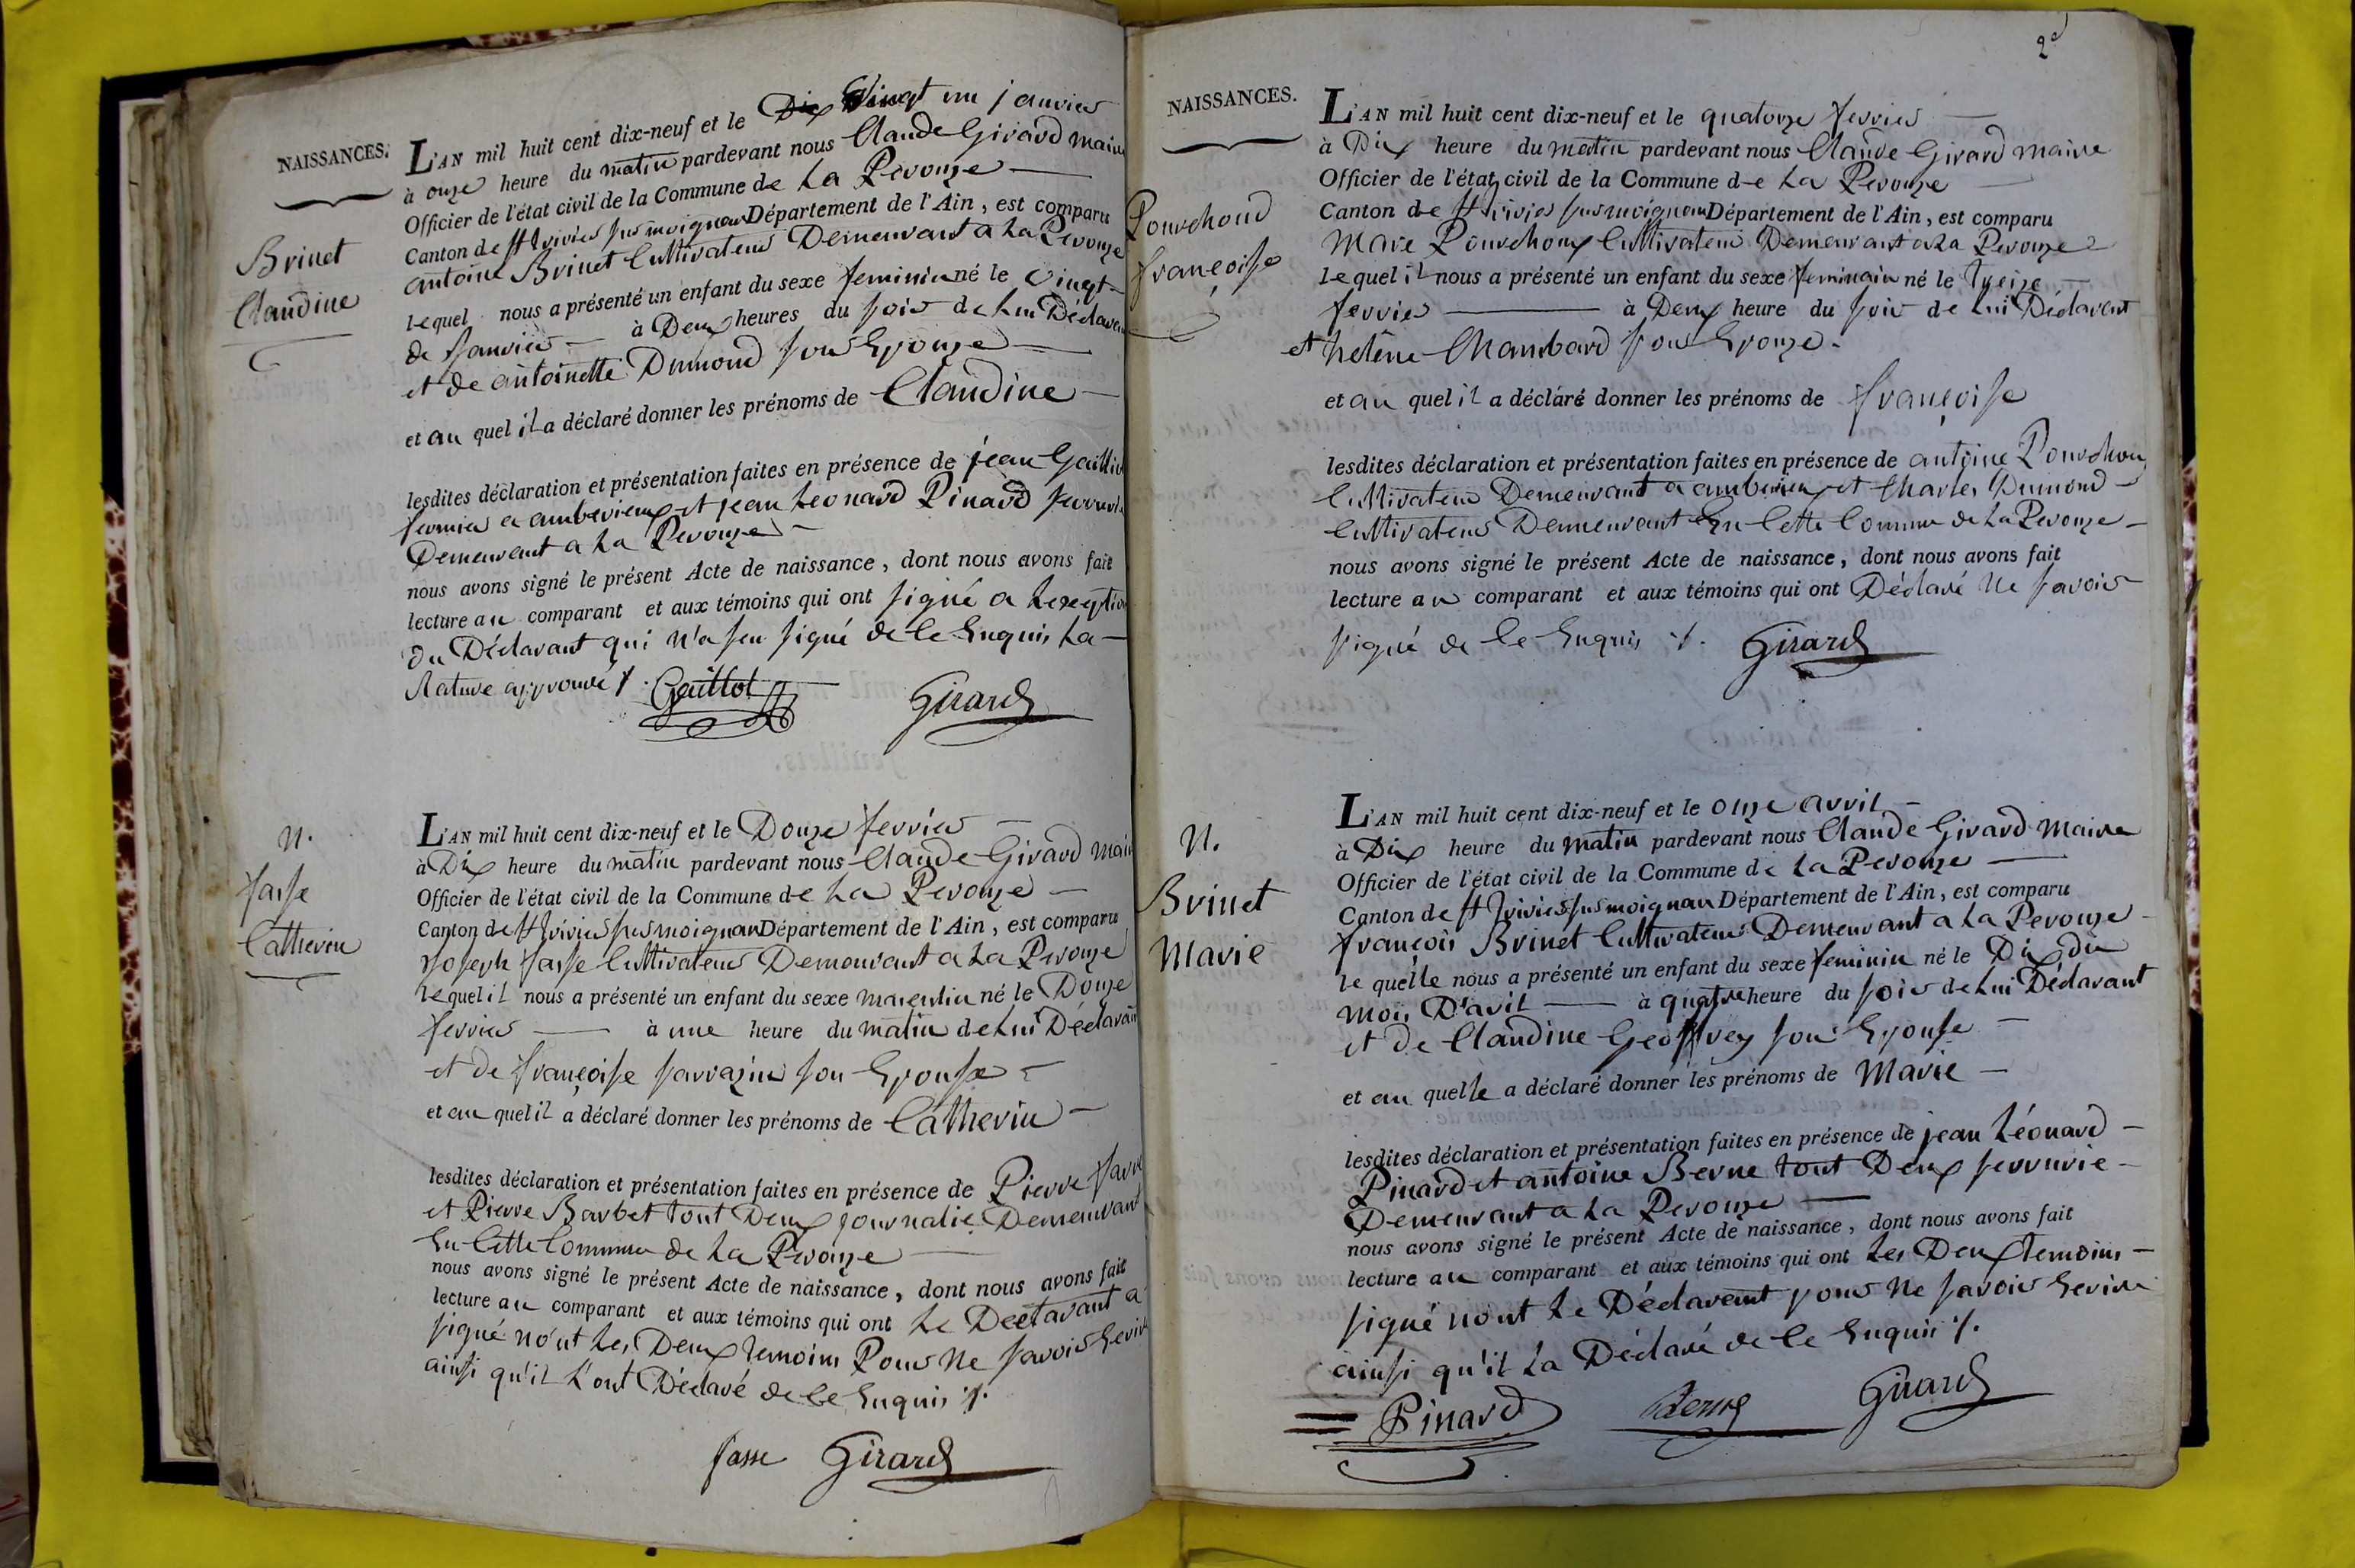 NAISSANCES.
Brinet
Claudine
L'AN mil huit cent dix-neuf et le Dix Vingt un janvier
à onze heure du matin pardevant nous Claude Girard maire
Officier de l'état civil de la Commune de La Perouze
Canton de St trivier sur moignan Département de l'Ain, est comparu
antoine Brinet Cultivateur Demeurant a La Perouze
lequel nous a présenté un enfant du sexe feminin né le vingt
de janvier à Deux heures du soir de Lui Déclarant
et de antoinette Dumond son Epouze
et au quel il a déclaré donner les prénoms de Claudine
lesdites déclaration et présentation faites en présence de jean
fermier a amberieux et jean Leonard Pinard
Demeurant a La Perouze
nous avons signé le présent Acte de naissance, dont nous avons fait
lecture au comparant et aux témoins qui ont signé a Lexeption
du Déclarant qui n'a seu signé de ce Enquis La
Rature approuvé
Girard
N.
fasse
Catherin
L'AN mil huit cent dix-neuf et le Douze fevrier
à Dix heure du matin pardevant nous Claude Girard mair
Officier de l'état civil de la Commune de La Perouze
Canton de St trivier sur moignan Département de l'Ain, est comparu
joseph fasse Cultivateur Demeurant a La Perouze
lequel il nous a présenté un enfant du sexe masculin né le Douze
fevrier à une heure du matin de Lui Déclarant
et de françoise sarrazin son Epouse
et au quel il a déclaré donner les prénoms de Catherin
lesdites déclaration et présentation faites en présence de Pierre
et Pierre Barbet tout Deux journalie Demeurant
En Cette Commune de La Perouze
nous avons signé le présent Acte de naissance, dont nous avons fait
lecture au comparant et aux témoins qui ont Le Declarant a
signé n'ont Les Deux temoins Pour Ne savoir Ecrire
ainsi qu'il L'ont Déclaré de Ce Enquis
fasse Girard
2e
NAISSANCES.
Pourchoud
françoise
L'AN mil huit cent dix-neuf et le quatorze fevrier
à Dix heure du matin pardevant nous Claude Girard maire
Officier de l'état civil de la Commune de La Perouze
Canton de St trivier sur moignan Département de l'Ain, est comparu
Marie Pourchoux Cultivateur Demeurant a La Perouze
lequel il nous a présenté un enfant du sexe feminain né le treize
fevrier à Deux heure du soir de Lui Déclarant
et helène Chambard son Epouze.
et au quel il a déclaré donner les prénoms de françoise
lesdites déclaration et présentation faites en présence de antoine Pourchou
Cultivateur Demeurant a amberieux et Charles Dumond
Cultivateur Demeurant En Cette Commune de La Perouze
nous avons signé le présent Acte de naissance, dont nous avons fait
lecture au comparant et aux témoins qui ont Déclaré Ne savoir
signé de Ce Enquis Girard
N.
Brinet
Marie
L'AN mil huit cent dix-neuf et le onze avril
à Dix heure du matin pardevant nous Claude Girard Maire
Officier de l'état civil de la Commune de La Perouze
Canton de St trivier sur moignan Département de l'Ain, est comparu
françois Brinet Cultivateur Demeurant a La Perouze
le quelle nous a présenté un enfant du sexe feminin né le Dix du
mois D'avil à quatre heure du soir de Lui Déclarant
et de Claudine Geoffrey son Epouse
et au quelle a déclaré donner les prénoms de Marie
lesdites déclaration et présentation faites en présence de jean Léonard
Pinard et antoine Berne tout Deux serrurie
Demeurant a La Perouze
nous avons signé le présent Acte de naissance, dont nous avons fait
lecture au comparant et aux témoins qui ont Les Deux temoins
signé n'ont Le Déclarant pour Ne savoir Ecrire
ainsi qu'il La Déclaré de Ce Enquis
Pinard Berne Girard